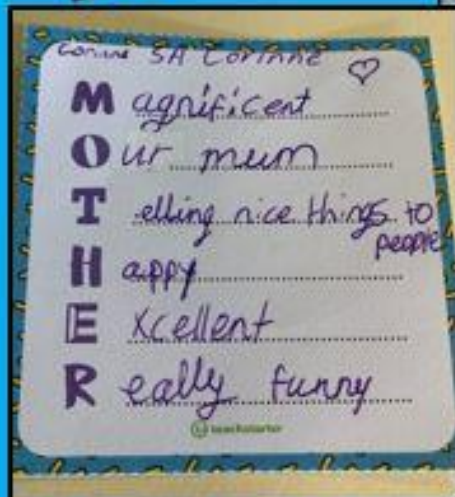 Corinne 5A Corinne
Magnificent
Our mum
Telling nice things to
people
Happy
Excellent
Really funny
teachstarter